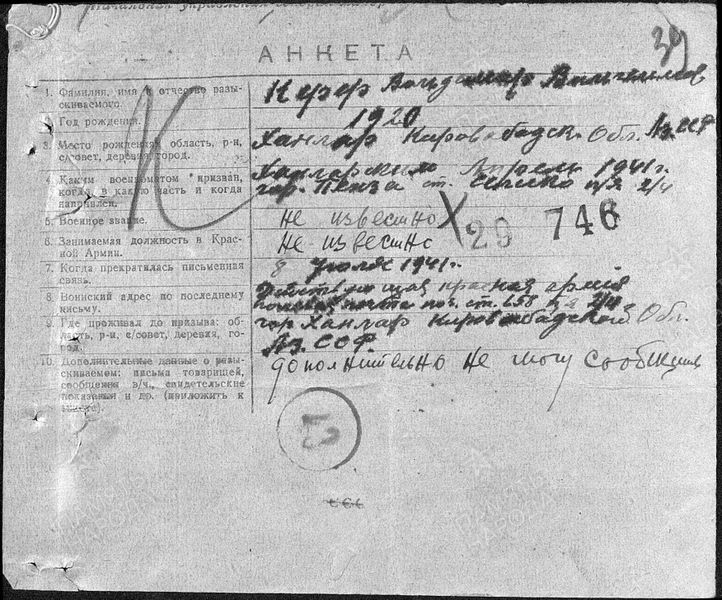 АНКЕТА
39
1. Фамилия, имя и отчество разы-
скиваемого.
Кезер Вольдемар Вильгельмов
2. Год рождения.
1920
3. Место рождения: область, р-н,
с/совет, деревня, город.
Ханлар Кировабадск. Обл. Аз.ССР
4. Каким военкоматом призван,
когда, в какую часть и когда
направлен.
Ханларским Апрель 1941 г.
гор. Пенза ст. п/я 2/4
5. Военное звание.
Не известно
К
X 29 746
6. Занимаемая должность в Крас-
ной Армии.
Не известно
7. Когда прекратилась письменная
связь.
8 Июля 1941 г.
8. Воинский адрес по последнему
письму.
Действующая красная армия
полевая почта поч. ст. 653 п/я 2/4
9. Где проживал до призыва: об-
ласть, р-н, с/совет, деревня, го-
род.
гор. Ханлар Кировабадской Обл.
Аз. ССР.
10. Дополнительные данные о разы-
скиваемом: письма товарищей,
сообщения в/ч., свидетельские
показания и др. (приложить к
анкете).
Дополнительно не могу сообщить
ПАМЯТЬ
НАРОДА